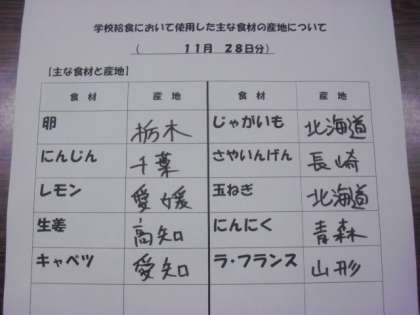 学校給食において使用した主な食材の産地について
( 11月 28日分)
【主な食材と産地】
食材 産地 食材 産地
卵 栃木 じゃがいも 北海道
にんじん 千葉 さやいんげん 長崎
レモン 愛媛 玉ねぎ 北海道
生姜 高知 にんにく 青森
キャベツ 愛知 ラ・フランス 山形